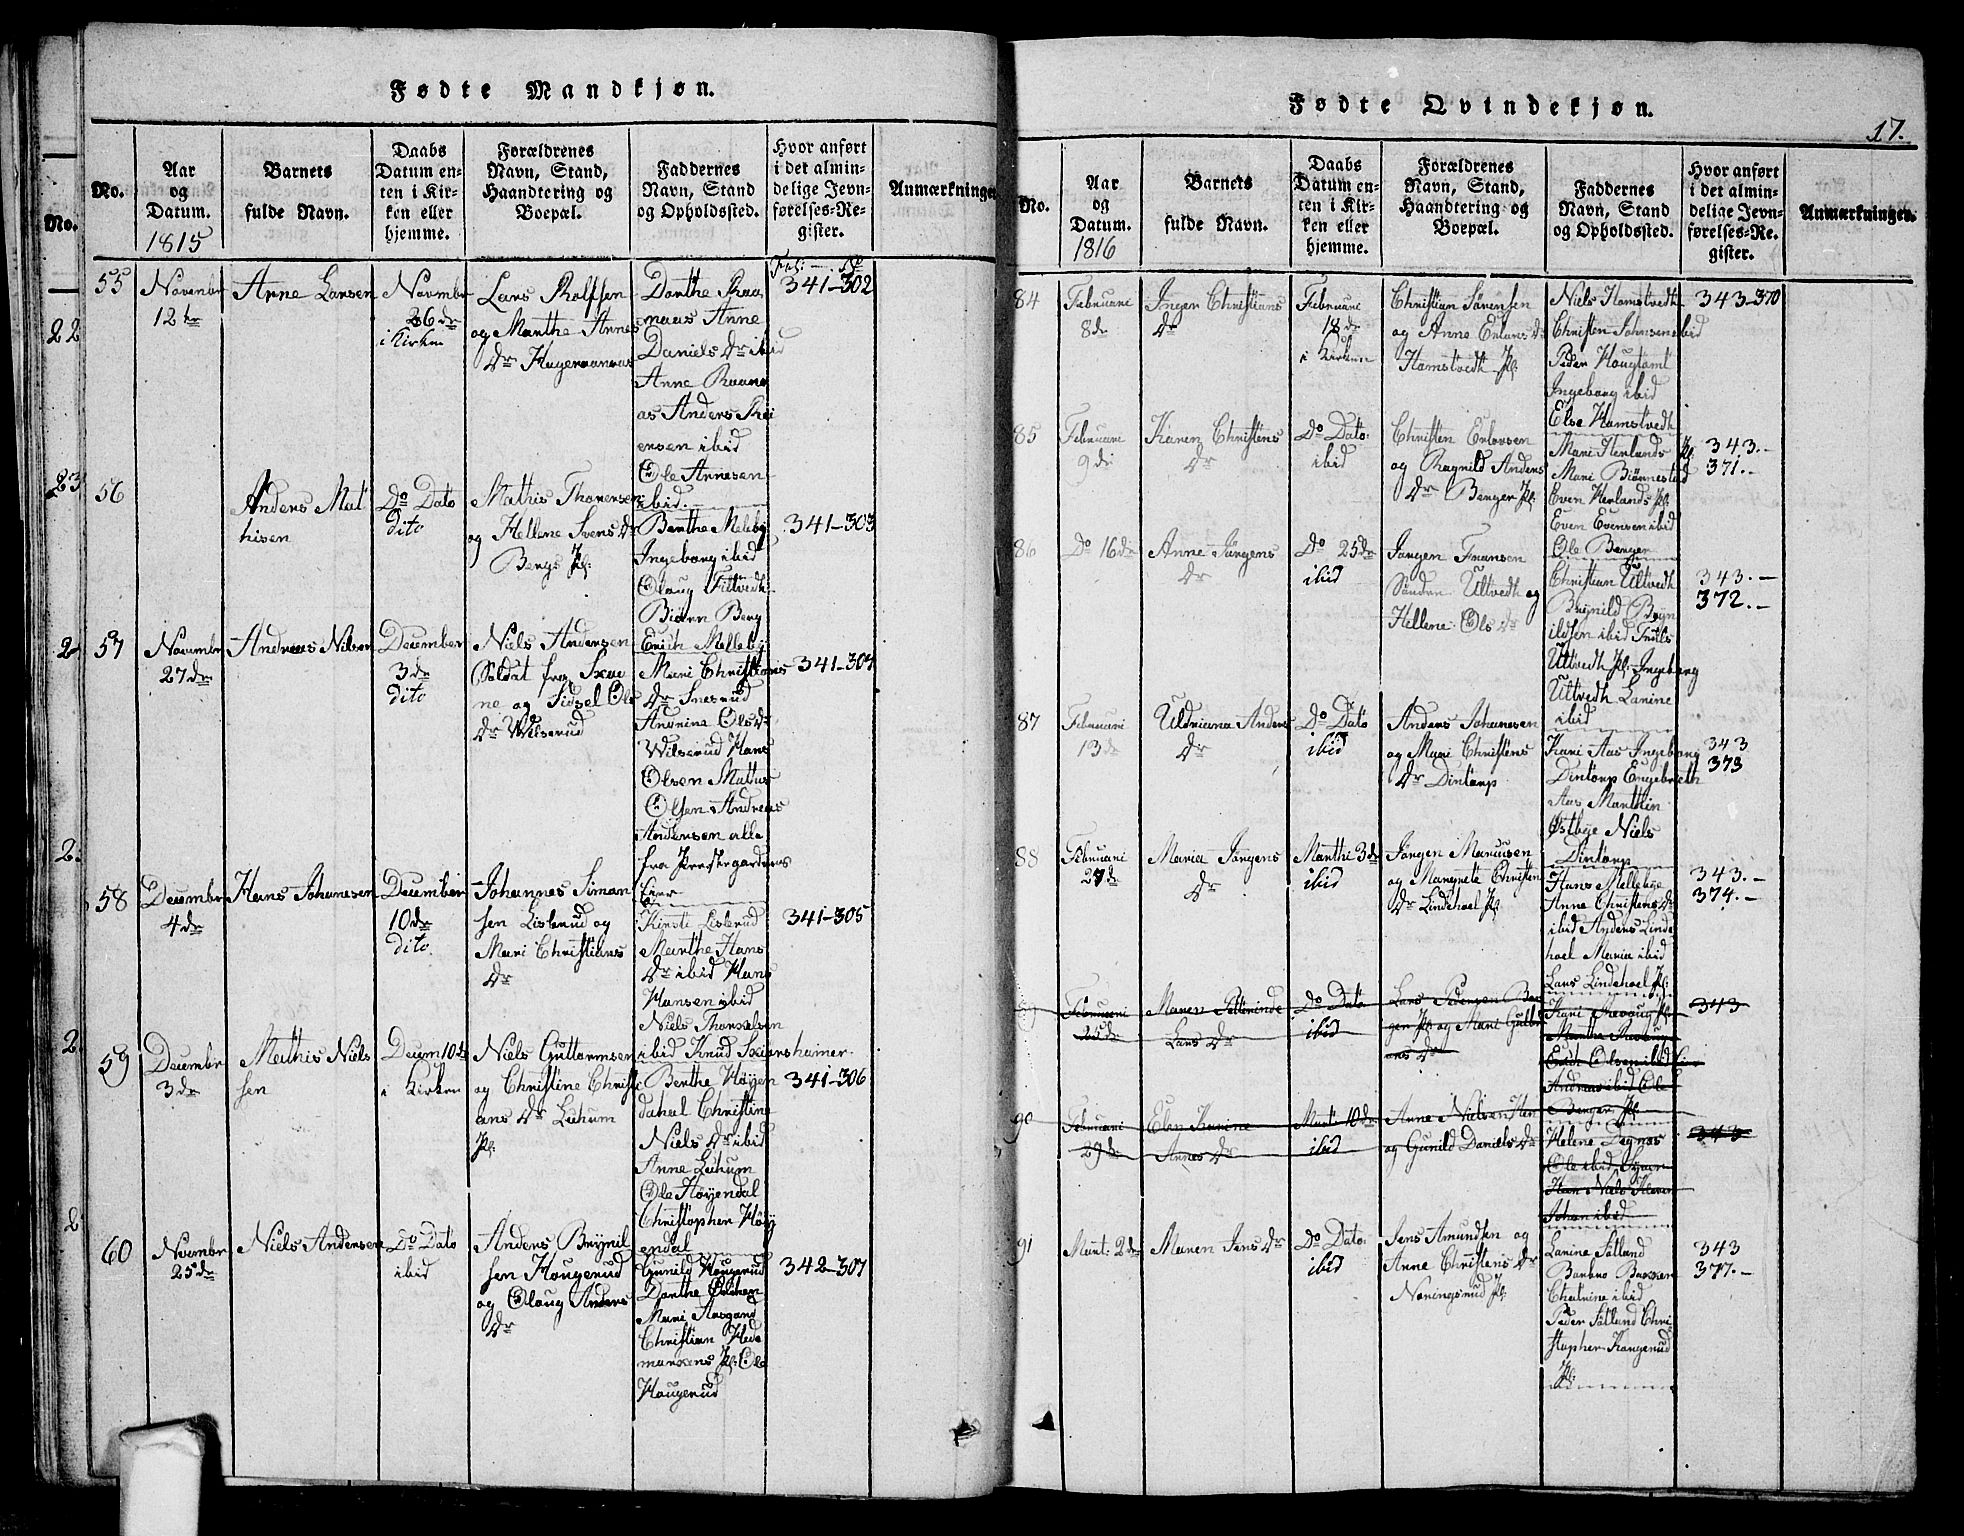 Fødte Mandkjøn.
No.
Aar
og
Datum.
1815
Barnets
fulde Navn.
Daabs
Datum en-
ten i Kir-
ken eller
hjemme.
Forældrenes
Navn, Stand,
Haandtering og
Boepæl.
Faddernes
Navn, Stand
og Opholdssted.
Hvor anført
i det almin-
delige Jevn-
førelses-Re-
gister.
Anmærkninger
No.
22
23
2
2.
2.
2
55
Novembr
12te
Arne Larsen
Novmbr
26de
i Kirken
Lars Rolfsen
og Marthe Arnes
Dr
Dorthe Raa
naas Anne
Daniels Dr ibid
Anne Raana
as Anders Rei
ersen ibid
Ole Arnesen
ibid.
341-302
56
Anders Mat
hisen
Do Dato
dito
Mathis Thoresen
og Hellene Svens Dr
Bergs Pl:
Berthe Meleby
Ingeborg ibid
Olaug Filtvedt
Biørn Berg
Erich Melleby
341-303
57
Novembr
27de
Andreas Nilsen
December
3de
dito
Niels Andersen
Soldat fra
ne og Sidsel Ols
Dr Wilserud
Mari Christians
Dr Snesrud
Andrine Ols Dr
Wilserud Hans
Olsen Mattis
Olsen Andreas
Andersen alle
fra Prestegaardens
Eier
341-304
58
Decembr
4de
Hans Johanesen
December
10de
dito.
Johannes Simon
sen Lislerud og
Mari Christians
Dr
Kirsti Lislerud
Marthe Hans
Dr ibid Hans
Hansen ibid
Niels Thorkelsen
ibid Knud
341-305
59
Decembr
3de
Mathis Niels
sen
Decem 10de
i Kirken
Niels Guttormsen
og Christine Christi
ans Dr Lechum
Pl:
Berthe Høyen
dahl Christine
Niels Dr ibid
Anne Lechum
Ole Høyendal
Christopher Høiy
endal
341-306
60
Novmbr
25de
Niels Andersen
Do Dato
ibid
Anders Brynil
sen Hougerud
og Olaug Anders
Dr
Gunild Hougerud
Dorthe
Mari Aasgard
Christian Hede
markens Pl: Ole
Hougerud
342-307
Fødte Qvindekjøn.
17.
No.
Aar
og
Datum.
1816
Barnets
fulde Navn.
Daabs
Datum en-
ten i Kir-
ken eller
hjemme.
Forældrenes
Navn, Stand,
Haandtering og
Boepæl.
Faddernes
Navn, Stand
og Opholdssted.
Hvor anført
i det almin-
delige Jevn-
førelses-Re-
gister.
Anmærkninger.
84
Februari
8de
Inger Christians
Dr
Februari
18de
i Kirken
Christian Sørensen
og Anne Eners Dr
Hamstvedt Pl:
Niels Hamstvedt
Christen Johnsen ibid
Peder Hougtomt
Ingeborg ibid
Else Hamstvedt
343-370
85
Februari
9de
Karen Christens
Dr
Do Dato.
ibid
Christen Enersen
og Ragnild Anders
Dr Berger Pl:
Mari Herlands Pl:
Mari Biørnestad
Even Herlands Pl:
Even Evensen ibid
Ole Berger
343.-
371.-
86
Do 16de
Anne Jørgens
Dr
Do 25de
ibid
Jørgen Fransen
Søndre Ultvedt og
Hellene Ols Dr
Christian Ultvedt
Brynild Bryn
ildsen ibid Truls
Ultvedt Pl: Ingeborg
Ultvedt Lanine
ibid
343.-
372.-
87
Februari
13de
Uldriana Anders
Dr
Do Dato
ibid
Anders Johanesen
og Mari Christens
Dr Dintorp
Kari Aas Ingeborg
Dintorp Engebreth
Aas Marthin
Østbye Niels
Dintorp
343
373
88
Februari
27de
Maria Jørgens
Dr
Marthi 3de
ibid
Jørgen Marcusen
og Margrete Christen
Dr Lindehoel Pl:
Hans Mellebye
Anne Christens Dr
ibid Anders Linde
hoel Maria ibid
Lars Lindehoel Pl:
343.-
374.-
89
Februari
25de
Maren Pettrinde
Lars Dr
Do Dato
ibid
Lars Pedersen Ber
ger Pl: og Mari Gulbr
ans Dr
Kari
Marthe
Erich Olsen
Andreas ibid Ole
Berger Pl:
343
90
Februari
29de
Elen Karine
Arnes Dr
Marti 10de
ibid
Arne Nielsen
og Gunild Daniels Dr
Helene
Ole ibid
Niels
Johan ibid
343
91
Mart: 2de
Maren Jens Dr
Do Dato:
ibid
Jens Amundsen og
Anne Christens Dr
Noringsrud Pl:
Lanine Sølland
Barbro
Chatrine ibid
Peder Sølland Chri
stopher Kongerud
Pl:
343
377.-